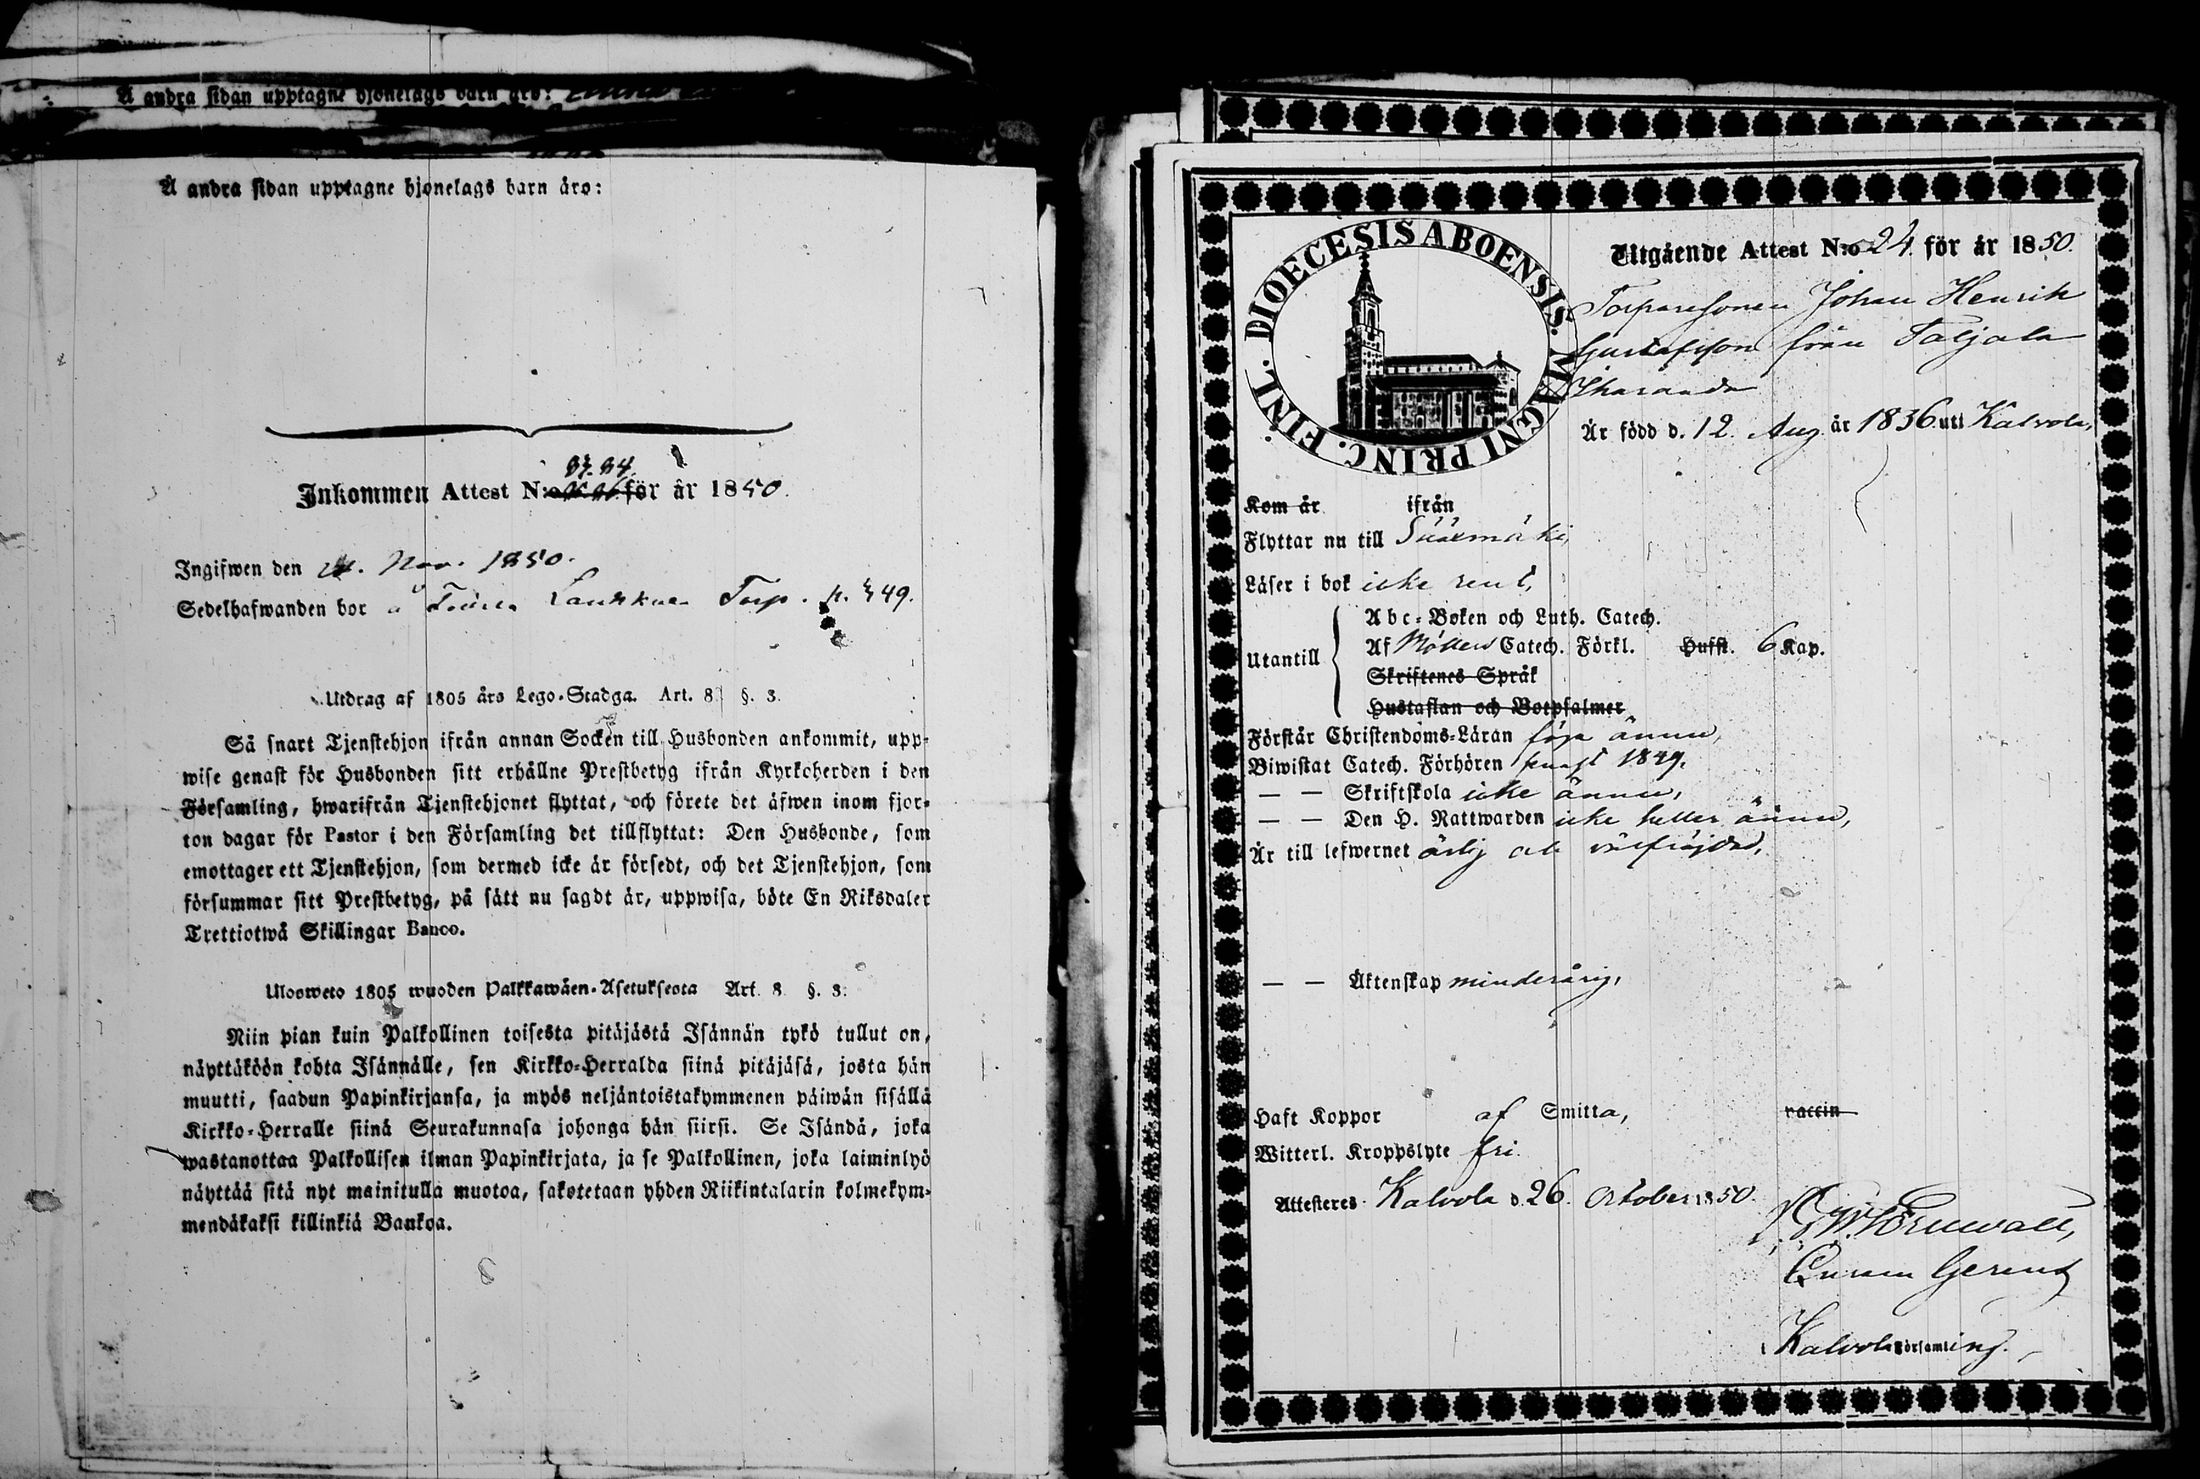 Å andra sidan upptagne hjonelags barn äro:
Å andra sidan upptagne hjonelags barn äro:
83. 84.
Inkommen Attest N:o för år 1850.
Ingifwen den Nov. 1850.
Sedelhafwanden bor å Torp. p. 449.
Utdrag af 1805 års Lego-Stadga. Art. 8. §. 3.
Så snart Tjenstehjon ifrån annan Socken till Husbonden ankommit, upp-
wise genast för Husbonden sitt erhållne Prestbetyg ifrån Kyrkoherden i den
Församling, hwarifrån Tjenstehjonet flyttat, och förete det äfwen inom fjor-
ton dagar för Pastor i den Församling det tillflyttat: Den Husbonde, som
emottager ett Tjenstehjon, som dermed icke är försedt, och det Tjenstehjon, som
försummar sitt Prestbetyg, på sätt nu sagdt är, uppwisa, böte En Riksdaler
Trettiotwå Skillingar Banco.
Uloswеto 1805 wuoden Palkkawäen-Asetuksesta Art. 8 §. 3.
Niin pian kuin Palkollinen toisesta pitäjästä Isännän tykö tullut on,
näyttäköön kohta Isännälle, sen Kirkko-Herralda siinä pitäjäsä, josta hän
muutti, saadun Papinkirjansa, ja myös neljäntoistakymmenen päiwän sisällä
Kirkko-Herralle siinä Seurakunnasa johonga hän siirsi. Se Isändä, joka
wastanottaa Palkollisen ilman Papinkirjata, ja se Palkollinen, joka laiminlyö
näyttää sitä nyt mainitulla muotoa, sakotetaan yhden Riikintalarin kolmekym-
mendäkaksi killinkiä Bankoa.
DIOECESIS ABOENSIS. MAGNI PRINC. FINL.
Utgående Attest N:o 24 för år 1850.
Torparesonen Johan Henrik
Gustafsson från Taljala
Iharanda
Är född d. 12. Aug. år 1836 uti Kalvola,
Kom år ifrån
Flyttar nu till Sääxmäki,
Läser i bok icke rent,
Utantill
Abc-Boken och Luth. Catech.
Af Möllers Catech. Förkl. Hufst. 6 Kap.
Skriftenes Språk
Hustaflan och Botpsalmer
Förstår Christendoms-Läran föga ännu,
Biwistat Catech. Förhören 1849.
— — Skriftskola icke ännu,
— — Den H. Nattwarden icke heller ännu,
Är till lefwernet ärlig och välfrejdad,
— — Äktenskap minderårig,
Haft Koppor af Smitta, vaccin
Witterl. Kroppslyte fri.
Attesteres Kalvola d. 26. October 1850.
Törnwall,
Curam Gerens
Kalvola Församling.